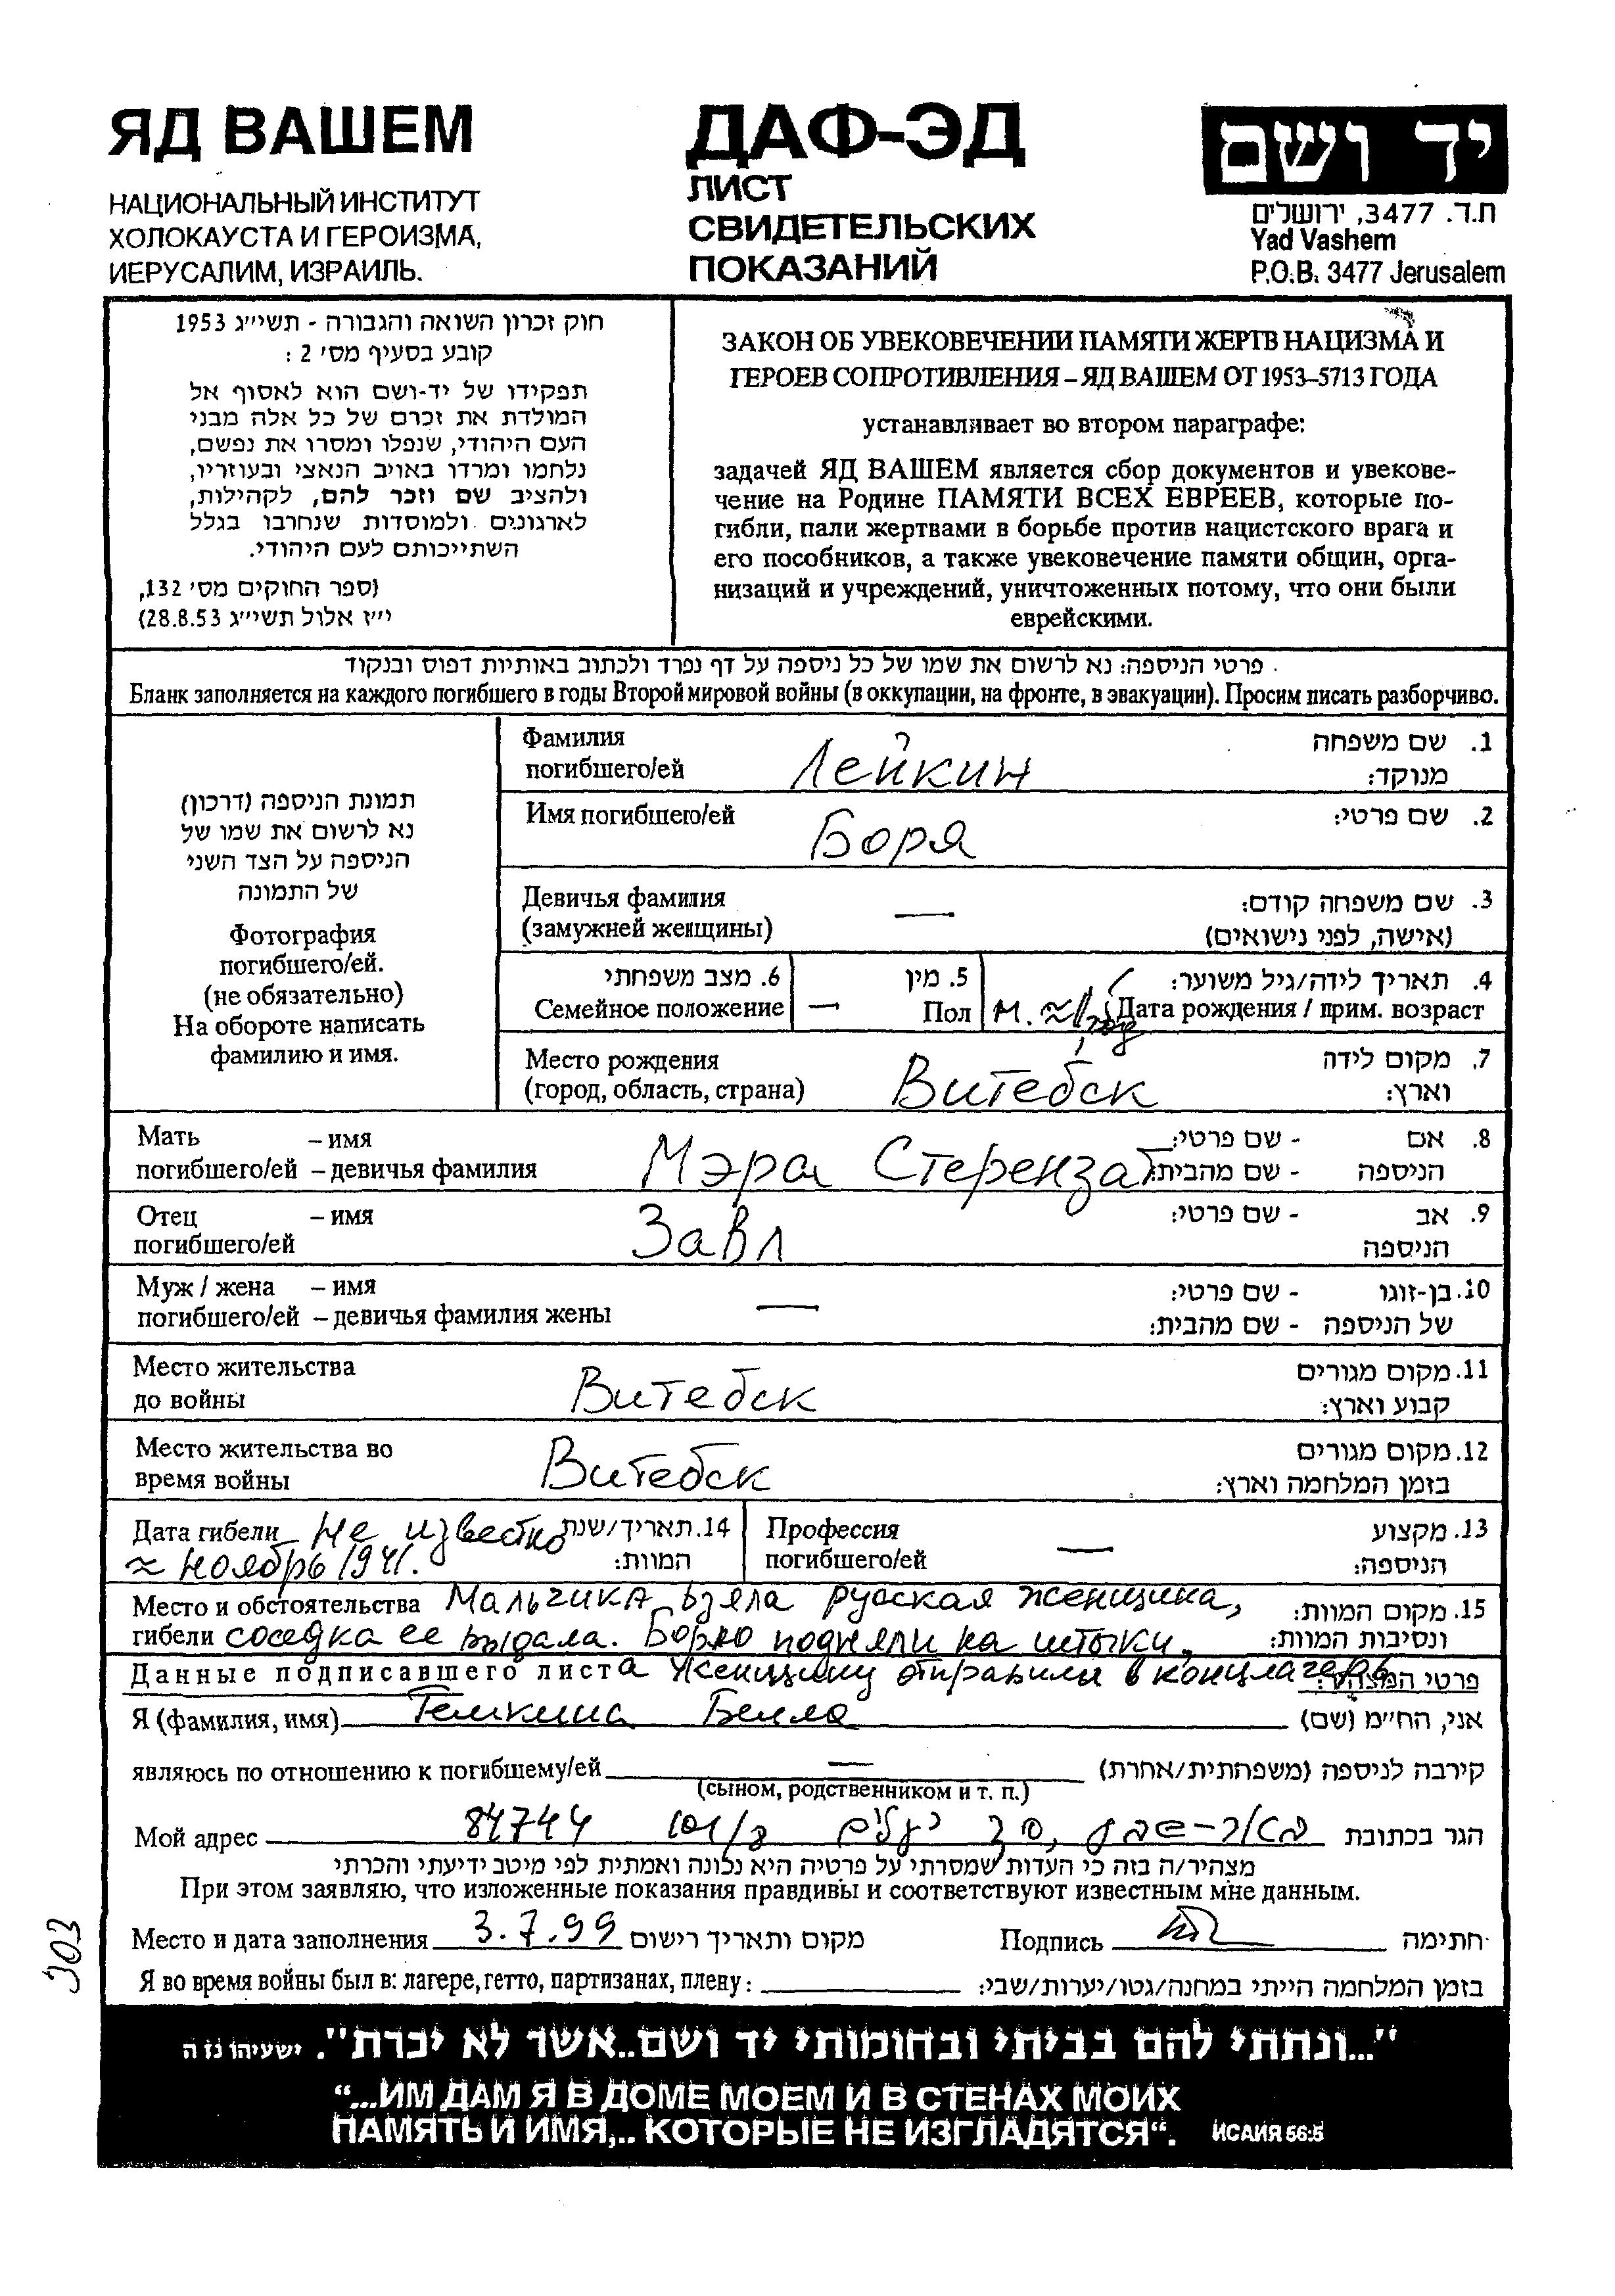 ЯД ВАШЕМ
НАЦИОНАЛЬНЫЙ ИНСТИТУТ
ХОЛОКАУСТА И ГЕРОИЗМА,
ИЕРУСАЛИМ, ИЗРАИЛЬ.
ДАФ-ЭД
ЛИСТ
СВИДЕТЕЛЬСКИХ
ПОКАЗАНИЙ
יד ושם
ת.ד. 3477, ירושלים
Yad Vashem
P.O.B. 3477 Jerusalem
חוק זכרון השואה והגבורה - תשי״ג 1953
קובע בסעיף מס׳ 2 :
תפקידו של יד-ושם הוא לאסוף אל
המולדת את זכרם של כל אלה מבני
העם היהודי, שנפלו ומסרו את נפשם,
נלחמו ומרדו באויב הנאצי ובעוזריו,
ולהציב שם וזכר להם, לקהילות,
לארגונים ולמוסדות שנחרבו בגלל
השתייכותם לעם היהודי.
(ספר החוקים מס׳ 132,
י״ז אלול תשי״ג 28.8.53)
ЗАКОН ОБ УВЕКОВЕЧЕНИИ ПАМЯТИ ЖЕРТВ НАЦИЗМА И
ГЕРОЕВ СОПРОТИВЛЕНИЯ – ЯД ВАШЕМ ОТ 1953–5713 ГОДА
устанавливает во втором параграфе:
задачей ЯД ВАШЕМ является сбор документов и увекове-
чение на Родине ПАМЯТИ ВСЕХ ЕВРЕЕВ, которые по-
гибли, пали жертвами в борьбе против нацистского врага и
его пособников, а также увековечение памяти общин, орга-
низаций и учреждений, уничтоженных потому, что они были
еврейскими.
פרטי הניספה: נא לרשום את שמו של כל ניספה על דף נפרד ולכתוב באותיות דפוס ובנקוד
Бланк заполняется на каждого погибшего в годы Второй мировой войны (в оккупации, на фронте, в эвакуации). Просим писать разборчиво.
תמונת הניספה (דרכון)
נא לרשום את שמו של
הניספה על הצד השני
של התמונה
Фотография
погибшего/ей.
(не обязательно)
На обороте написать
фамилию и имя.
Фамилия 1. שם משפחה
погибшего/ей Лейкин מנוקד:
Имя погибшего/ей Боря 2. שם פרטי:
Девичья фамилия — 3. שם משפחה קודם:
(замужней женщины) (אישה, לפני נישואים)
6. מצב משפחתי 5. מין 4. תאריך לידה/גיל משוער:
Семейное положение — Пол м. Дата рождения / прим. возраст
Место рождения 7. מקום לידה
(город, область, страна) Витебск וארץ:
Мать – имя - שם פרטי: 8. אם
погибшего/ей – девичья фамилия Мэра Стерензат - שם מהבית: הניספה
Отец – имя Завл - שם פרטי: 9. אב
погибшего/ей הניספה
Муж / жена – имя - שם פרטי: 10. בן-זוגו
погибшего/ей – девичья фамилия жены — - שם מהבית: של הניספה
Место жительства 11. מקום מגורים
до войны Витебск קבוע וארץ:
Место жительства во 12. מקום מגורים
время войны Витебск בזמן המלחמה וארץ:
Дата гибели Не известно 14. תאריך/שנת
≈ ноябрь 1941. המוות:
Профессия 13. מקצוע
погибшего/ей — הניספה:
Место и обстоятельства Мальчика взяла русская женщина, 15. מקום המוות:
гибели соседка ее выдала. Борю подняли на штыки, ונסיבות המוות:
Данные подписавшего листа Женщину отправили в концлагерь פרטי המצהיר:
Я (фамилия, имя) Темкина Белла אני, הח״מ (שם)
являюсь по отношению к погибшему/ей — קירבה לניספה (משפחתית/אחרת)
(сыном, родственником и т. п.)
Мой адрес 84744 באר-שבע, הגר בכתובת
מצהיר/ה בזה כי העדות שמסרתי על פרטיה היא נכונה ואמתית לפי מיטב ידיעתי והכרתי
При этом заявляю, что изложенные показания правдивы и соответствуют известным мне данным.
Место и дата заполнения 3.7.99 מקום ותאריך רישום Подпись חתימה
Я во время войны был в: лагере, гетто, партизанах, плену: בזמן המלחמה הייתי במחנה/גטו/יערות/שבי:
303
״...ונתתי להם בביתי ובחומותי יד ושם..אשר לא יכרת״. ישעיהו נו ה
“...ИМ ДАМ Я В ДОМЕ МОЕМ И В СТЕНАХ МОИХ
ПАМЯТЬ И ИМЯ,.. КОТОРЫЕ НЕ ИЗГЛАДЯТСЯ“. ИСАИЯ 56:5